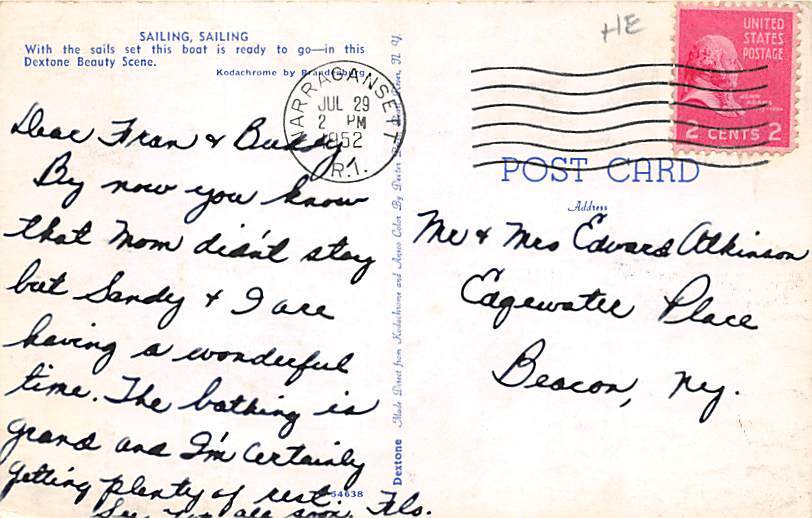 SAILING, SAILING
With the sails set this boat is ready to go—in this
Dextone Beauty Scene.
Kodachrome by Brandenburg
HE
NARRAGANSETT
JUL 29
2 PM
1952
R.I.
UNITED
STATES
POSTAGE
JOHN
ADAMS
2 CENTS 2
POST CARD
Address
Dear Fran & Buddy
By now you know
that Mom didn't stay
but Sandy & I are
having a wonderful
time. The bathing is
grand and I'm certainly
getting plenty of rest.
See you all soon, Fls.
Mr & Mrs Edward Atkinson
Edgewater Place
Beacon, Ny.
Dextone Made Direct from Kodachrome and Ansco Color By Dexter N. Y.
54638